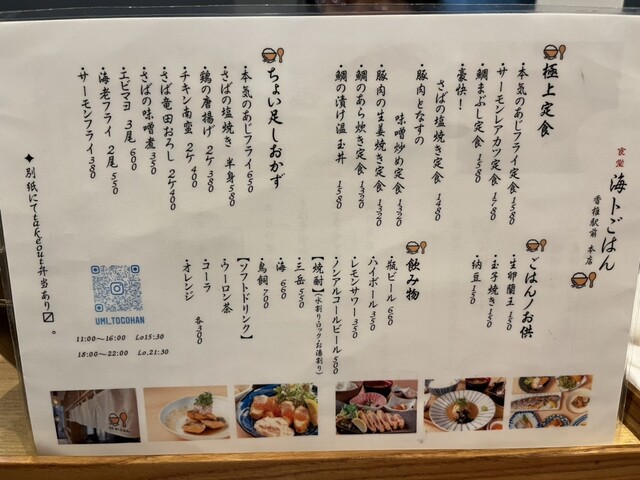 食堂 海トごはん
香椎駅前 本店
極上定食
・本気のあじフライ定食 1580
・サーモンレアカツ定食 1780
・鯛まぶし定食 1580
・豪快!
さばの塩焼き定食 1480
・豚肉となすの
味噌炒め定食 1320
・豚肉の生姜焼き定食 1320
・鯛のあら炊き定食 1320
・鯛の漬け温玉丼 1580
ちょい足しおかず
・本気のあじフライ 650
・さばの塩焼き 半身 580
・鶏の唐揚げ 2ケ 380
・チキン南蛮 2ケ 400
・さば竜田おろし 2ケ 400
・さばの味噌煮 350
・エビマヨ 3尾 600
・海老フライ 2尾 550
・サーモンフライ 380
ごはんノお供
・生卵蘭王 150
・玉子焼き 150
・納豆 150
飲み物
・瓶ビール 660
・ハイボール 350
・レモンサワー 350
・ノンアルコールビール 500
【焼酎】(水割り・ロック・お湯割り)
・三岳 550
・海 660
・鳥飼 700
【ソフトドリンク】
・ウーロン茶
・コーラ
・オレンジ 各300
✦別紙にてtakeout弁当あり〼。
UMI_TOGOHAN
11:00〜16:00 Lo15:30
18:00〜22:00 Lo.21:30